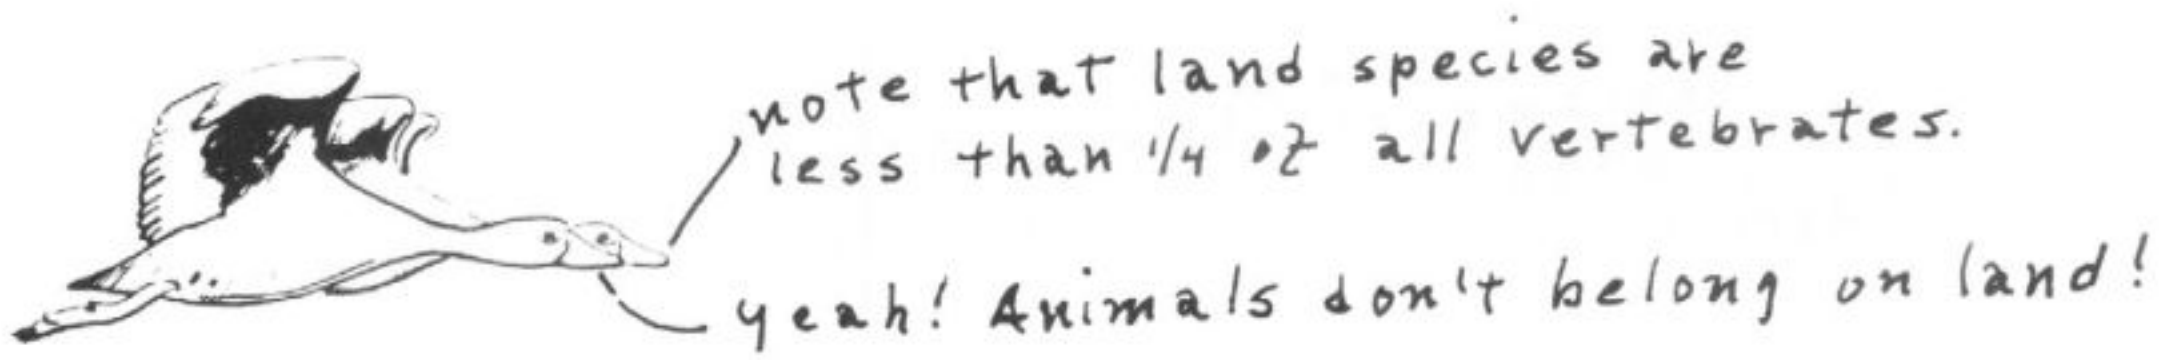 note that land species are
less than 1/4 of all vertebrates.
yeah! Animals don't belong on land!